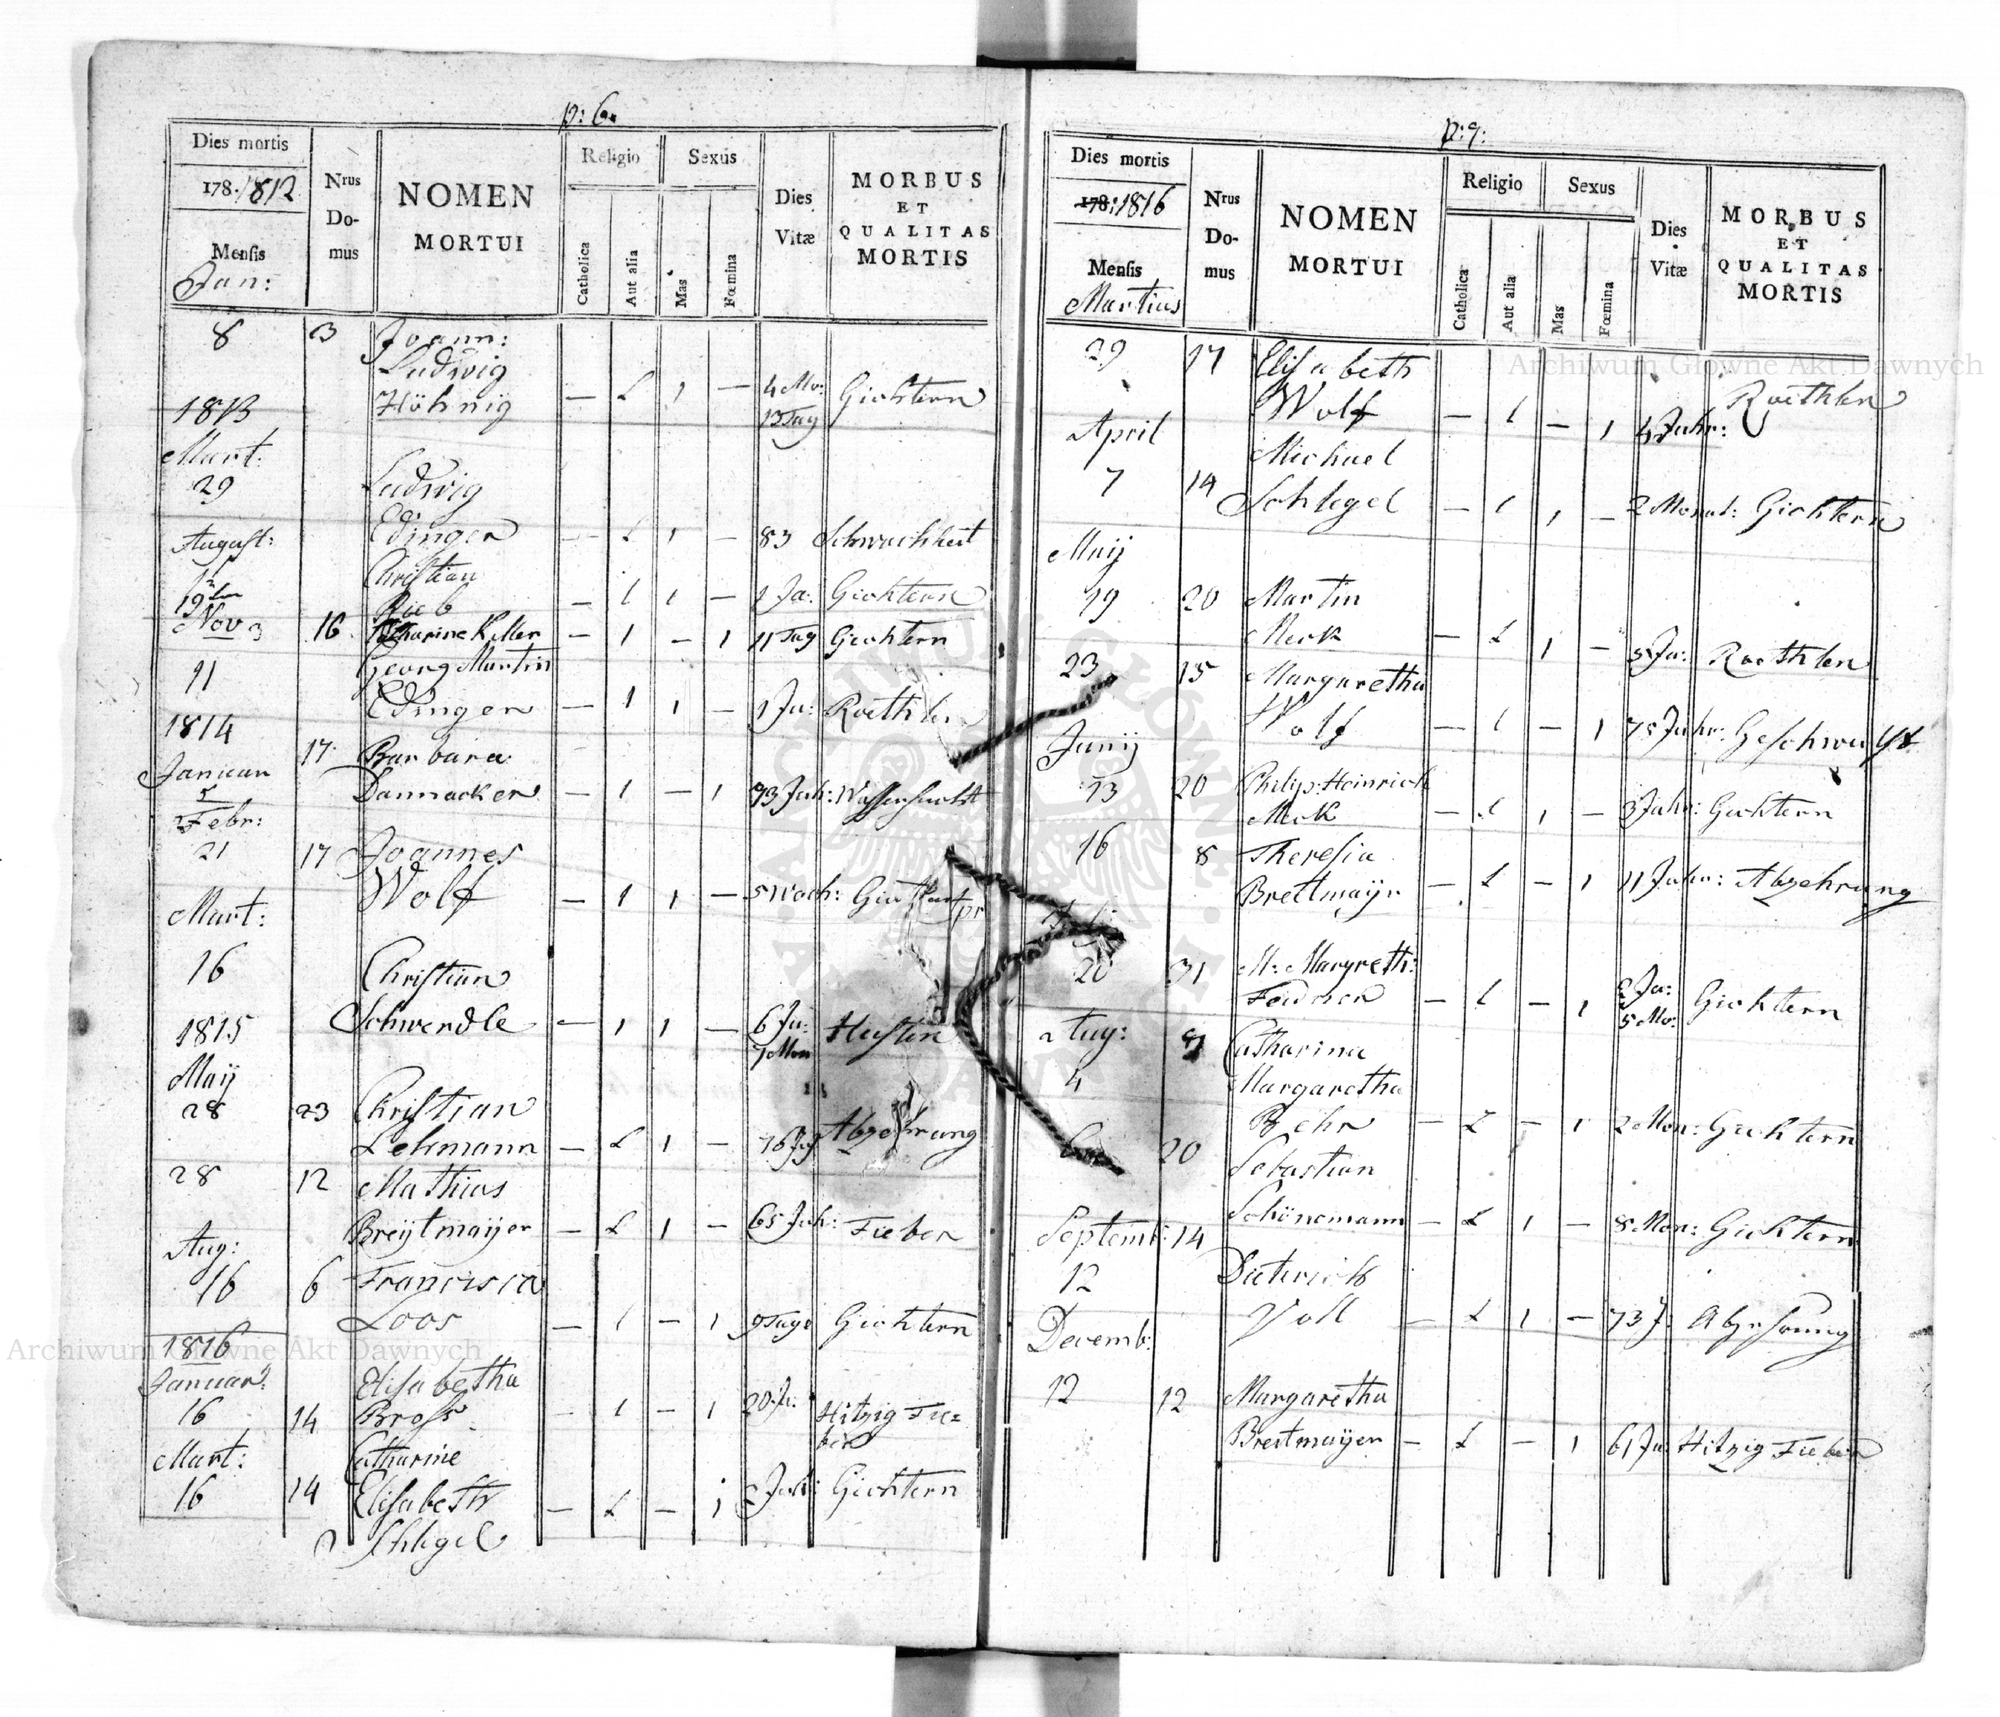 p: 6.
Dies mortis
178. 1812
Mensis
Jan:
Nrus
Do-
mus
NOMEN
MORTUI
Religio
Catholica
Aut alia
Sexus
Mas
Fœmina
Dies
Vitæ
MORBUS
ET
QUALITAS
MORTIS
8 3 Joann:
Ludwig
Höhnig — L 1 — 4 Mo: 13 Tag Gichtern
1813
Mart:
29 Ludwig
Edinger — L 1 — 83 Schwachheit
August:
Christian
19ten Rieb — 1 1 — 1 Ja: Gichtern
Nov 3 16 Katharine Keller — 1 — 1 11 Tag Gichtern
11 Georg Martin
Edinger — 1 1 — 1 Ja: Roethlen
1814
Januar 17 Barbara
5 Dannacker — 1 — 1 73 Jah: Wassersucht
Febr:
21 17 Joannes
Wolf — 1 1 — 5 Woch:
Mart:
16 Christian
Schwerdle — 1 1 — 6 Ja: 7 Mon Husten
1815
Maij
28 23 Christian
Lehmann — L 1 — Abzehrung
28 12 Mathias
Breijtmaijer — L 1 — 65 Jah: Fieber
Aug:
16 6 Francisca
Loos — 1 — 1 9 Tage Gichtern
1816
Januar:
Elisabetha
16 14 Bross — 1 — 1 20 J: Hitzig Fie=
ber
Mart:
Catharine
16 14 Elisabeth — L — 1 Jah: Gichtern
Schlegel
p: 7:
Dies mortis
178. 1816
Mensis
Martius
Nrus
Do-
mus
NOMEN
MORTUI
Religio
Catholica
Aut alia
Sexus
Mas
Fœmina
Dies
Vitæ
MORBUS
ET
QUALITAS
MORTIS
29 17 Elisabeth
Wolf — 1 — 1 4 Jahr: Roethlen
April
Michael
7 14 Schlegel — 1 1 — 2 Monat: Gichtern
Maij
19 20 Martin
Merk — L 1 — 5 Ja: Roethlen
23 15 Margaretha
Wolf — 1 — 1 75 Jahr: Geschwulst
Junij
13 20 Philip: Heinrich
Merk — L 1 — 3 Jahr: Gichtern
16 8 Theresia
Breitmaijr — L — 1 11 Jahr: Abzehrung
20 31 M: Margreth:
— L — 1 2 Ja: 5 Mo: Gichtern
Aug: Catharina
4 Margaretha
Behr — L — 1 2 Mon: Gichtern
20 Sebastian
Schönemann — L 1 — 8 Mon: Gichtern
Septemb: 14
12 Dieterich
Voll — L 1 — 73 J: Abzehrung
Decemb:
12 12 Margaretha
Breitmaijer — L — 1 61 Ja: Hitzig Fieber
Archiwum Główne Akt Dawnych
Archiwum Główne Akt Dawnych